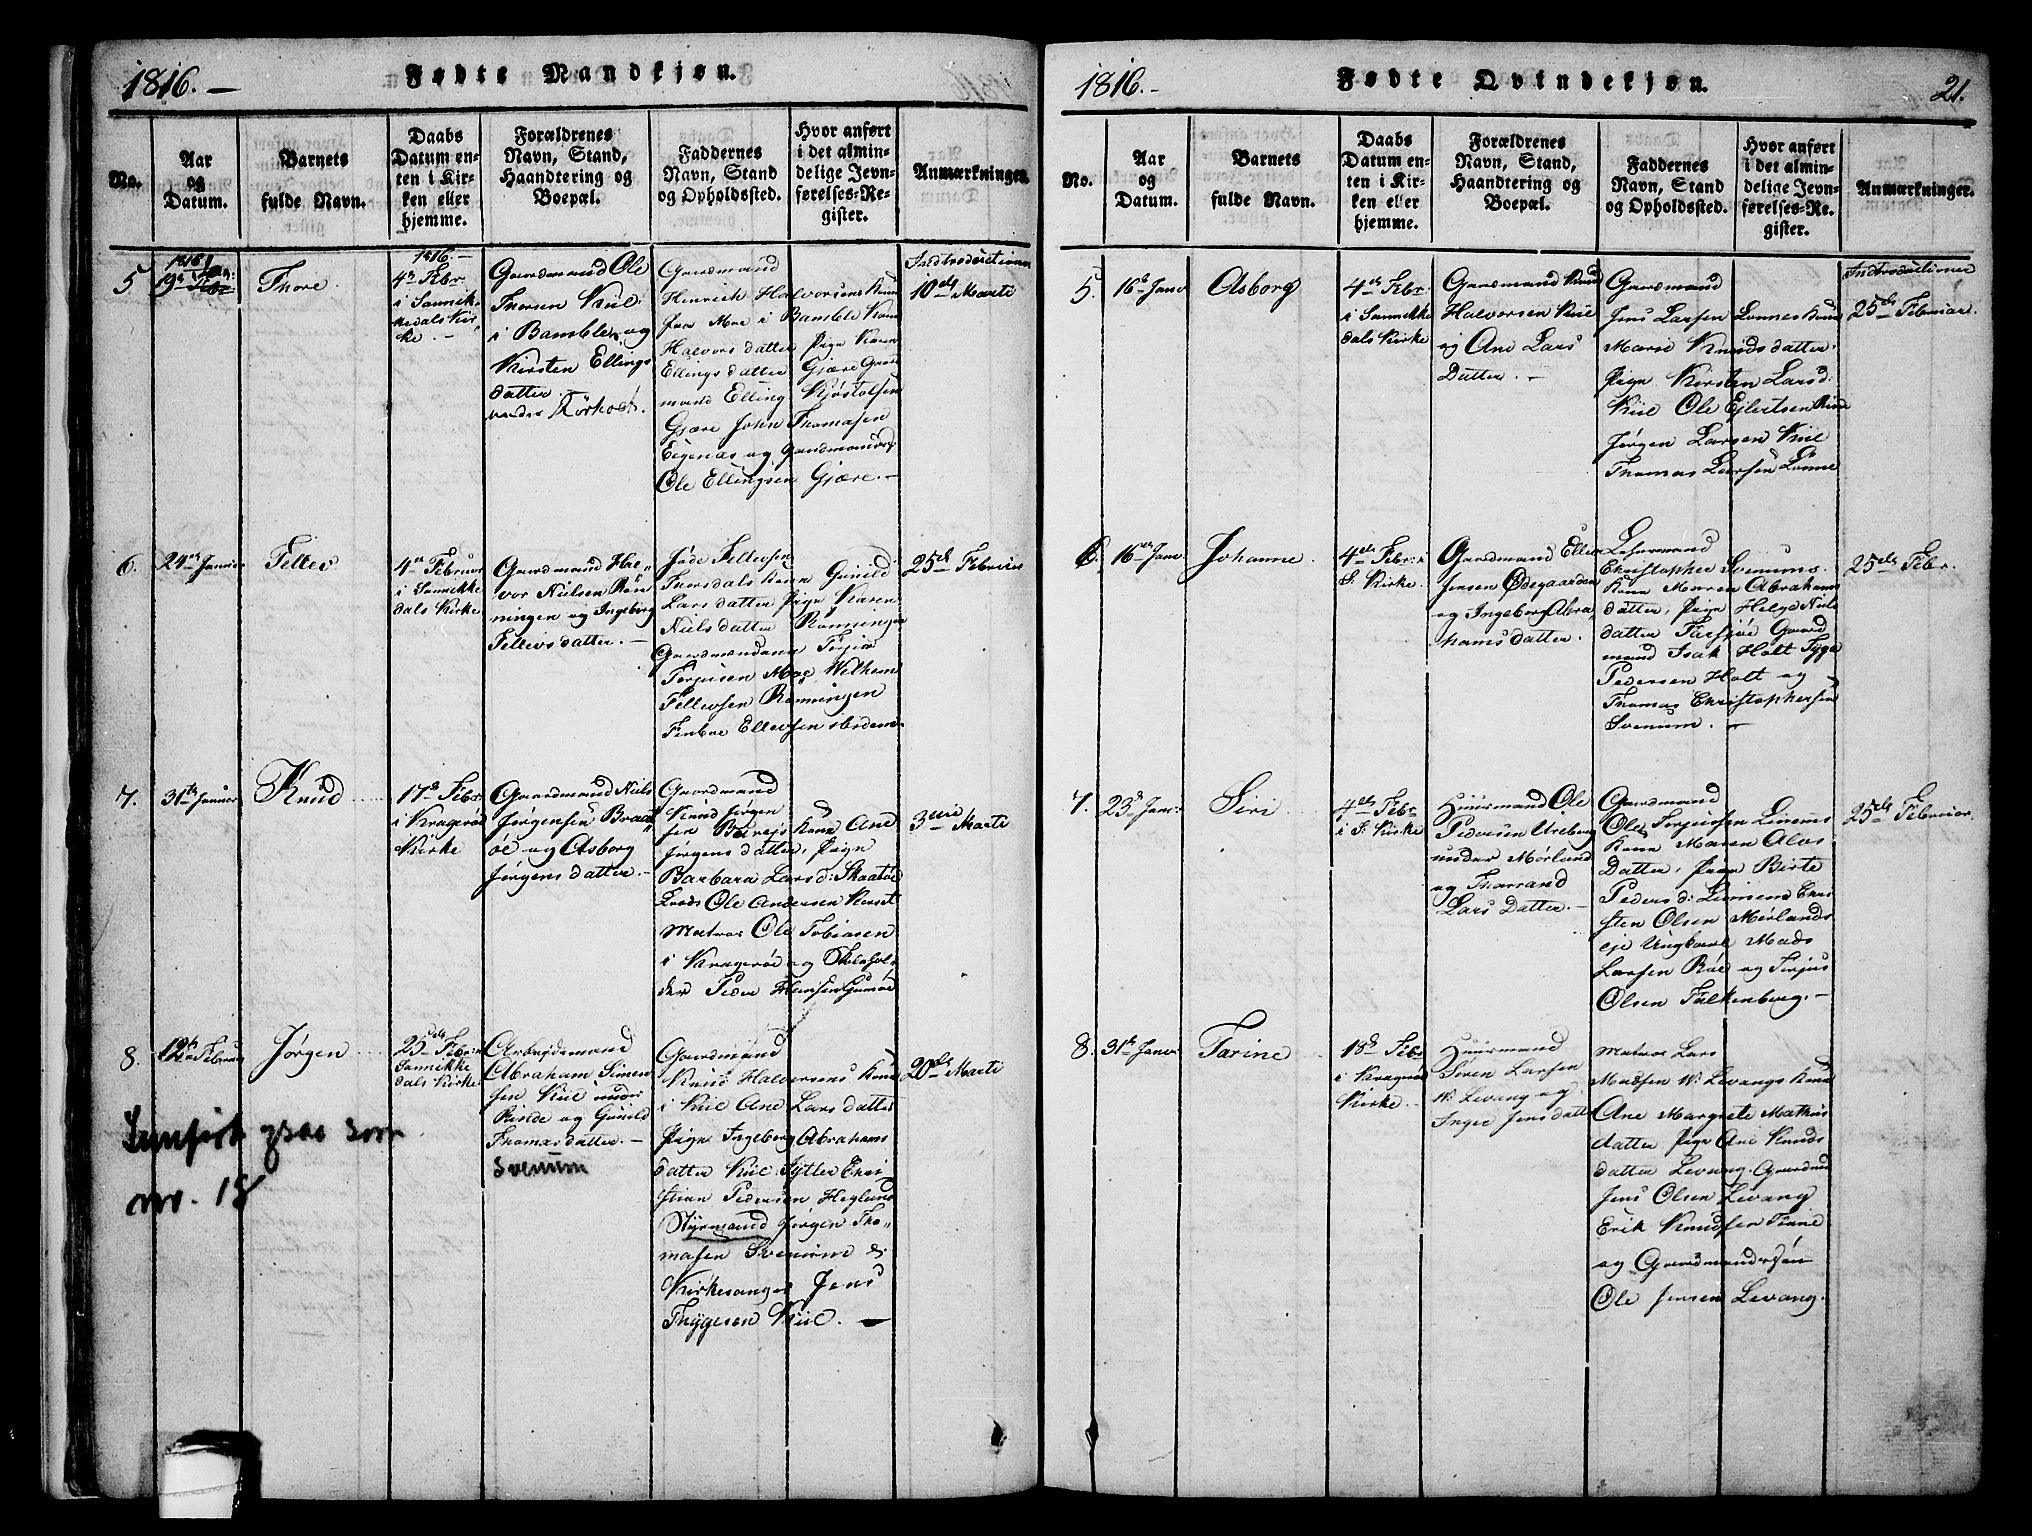 1816. –
Fødte Mandkjøn.
No.
Aar
og
Datum.
Barnets
fulde Navn.
Daabs
Datum en-
ten i Kir-
ken eller
hjemme.
Forældrenes
Navn, Stand,
Haandtering og
Boepæl.
Faddernes
Navn, Stand
og Opholdssted.
Hvor anført
i det almin-
delige Jevn-
førelses-Re-
gister.
Anmærkninger
5
1816
19de Jan:
Thore.
1816. –
4de Febr
i Sannik-
kedals Kir-
ke. –
Gaardmand Ole
Thorsen Kiil
i Bamble og
Kirsten Ellings
datter
under
Gaardmand
Henrich Halvorsens Kone
fra Moe i Bamble
Halvors datter Pige Karen
Ellings datter Gjære Gaard
mand Elling Kjøstolsen
Gjære John Thomasen
Eigenæs og Gaardmand
Ole Ellingsen Gjære. –
Indtroductionen
10de Marti
6.
24de Januar
Tellev
4de Februar
i Sannikke
dals Kirke
Gaardmand Hal
vor Nielsen Røn
ningen og Ingeborg
Tellevsdatter. –
Tellevsen
Kone Gunild
Lars datter Pige Karen
Niels datter Rønningen
Gaardmændene
Terjesen Moe Wilhelm
Tellevsen Rønningen
Ellevsen
25de Februar
7.
31te Januar
Knud
17de Febr
i Kragerøe
Kirke
Gaardmand Niels
Jørgensen Braat
øe og Asborg
Jørgensdatter. –
Gaardmand
Knud Jørgen
sen Kone Ane
Jørgens datter, Pige
Barbara Lars d: Skaatøe
Lods Ole Andersen
Matros Ole Tobiasen
i Kragerøe og
Peder Hansen Gumøe
3die Marti
8.
12te Februar
Jørgen
25de Febr:
Sannikke
dals Kirke
Arbeidsmand
Abraham Simen
sen Kiil under
Rinde og Gunild
Thomasdatter. –
Svenum
Gaardmand
Knud Halvorsens Kone
i Kiil Ane Lars datter
Pige Ingeborg Abrahams
datter Kiil Chri
stian Pedersen Heglund
Styrmand Jørgen Tho
masen Svenum &
Kirkesanger Jens
Thygesen Kiil. –
ogsaa som
no. 18
1816. –
Fødte Qvindekjøn.
21.
No.
Aar
og
Datum.
Barnets
fulde Navn.
Daabs
Datum en-
ten i Kir-
ken eller
hjemme.
Forældrenes
Navn, Stand,
Haandtering og
Boepæl.
Faddernes
Navn, Stand
og Opholdssted.
Hvor anført
i det almin-
delige Jevn-
førelses-Re-
gister.
Anmærkninger.
5.
16de Janv
Asborg
4de Febr.
i Sannikke
dals Kirke
Gaardmand Knud
Halvorsen Kiil
og Ane Lars
Datter. –
Gaardmand
Jens Larsen Lønnes Kone
Marie Knuds datter.
Pige Kirsten Lars d:
Kiil Ole Ejlertsen Rinde
Jørgen Larsen Kiil
Thomas Larsen Lønne
Indtroductionen
25de Februar.
6.
16de Janv.
Johanne.
4de Febr.
S: Kirke.
Gaardmand Ellev
Jensen Ødegaarden
og Ingeborg Abra
hams datter.
Christopher Svenums
Kone Maren Abrahams
datter, Pige Helge Niels
datter Farsjøe Gaard
mand Isak Holt Tyge
Pedersen Holt og
Thomas Christophersen
Svenum. –
25de Febr.
7.
23de Janv:
Siri
4de Febr.
i S: Kirke
Huusmand Ole
Pedersen
under Mørland
og
Lars Datter. –
Gaardmand
Ole Terjussen
Kone Maren Alvs
Datter, Pige Birte
Peders d: Chri
sten Olsen Mørlands
eje Ungkarl Mads
Larsen Røe og Terjus
Olsen Falkenberg. –
25de Februar.
8.
31te Janv
Tarine
18de Febr
i Kragerøe
Kirke. –
Huusmand
Søren Larsen
W. Levang og
Inger Jensdatt
Matros Lars
Madsen W: Levangs Kone
Ane Margrete Mathis
datter Pige Ane Knuds
datter Levang. Gaardmd
Jens Olsen Levang
Erik Knudsen
og Gaardmandssøn
Ole Jensen Levang.